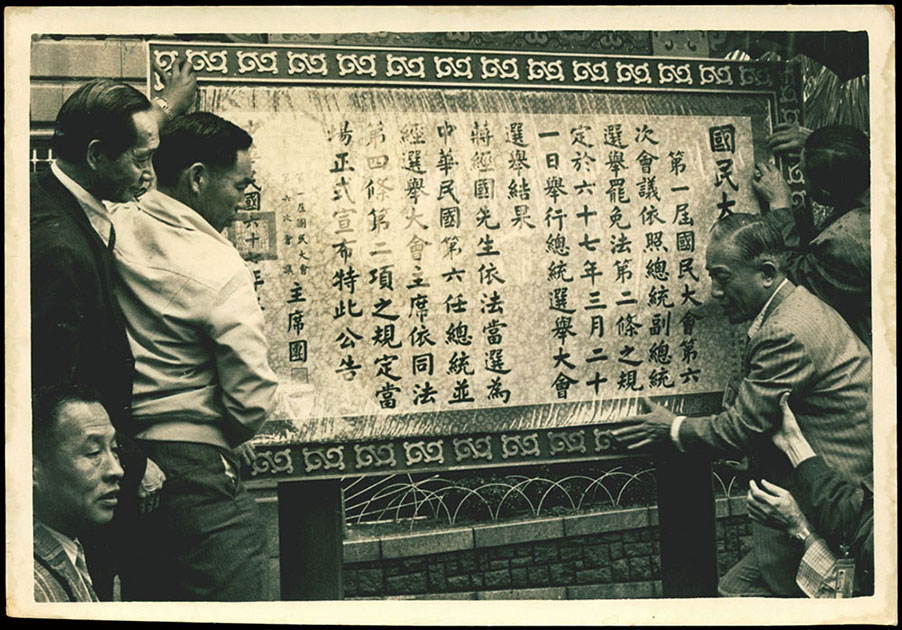 國民大
第一屆國民大會第六
次會議依照總統副總統
選舉罷免法第二條之規
定於六十七年三月二十
一日舉行總統選舉大會
選舉結果
蔣經國先生依法當選為
中華民國第六任總統並
經選舉大會主席依同法
第四條第二項之規定當
場正式宣布特此公告
第一屆國民大會
六次會議
主席團
民國六十七年